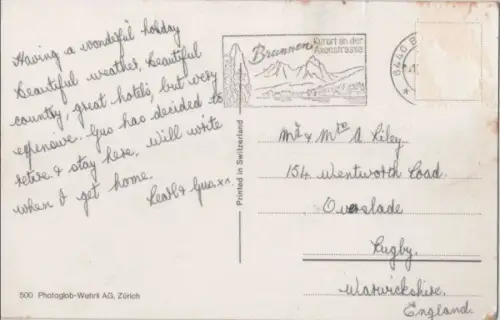 Having a wonderful holiday
beautiful weather, beautiful
country, great hotels, but very
expensive. Gus has decided to
retire & stay here. Will write
when I get home.
Pearl & Gus. xx
500 Photoglob-Wehrli AG, Zürich
Printed in Switzerland
Brunnen
Kurort an der
Axenstrasse
6440 B
Mr & Mrs A Riley.
154 Wentworth Road.
Overslade
Rugby.
Warwickshire.
England.